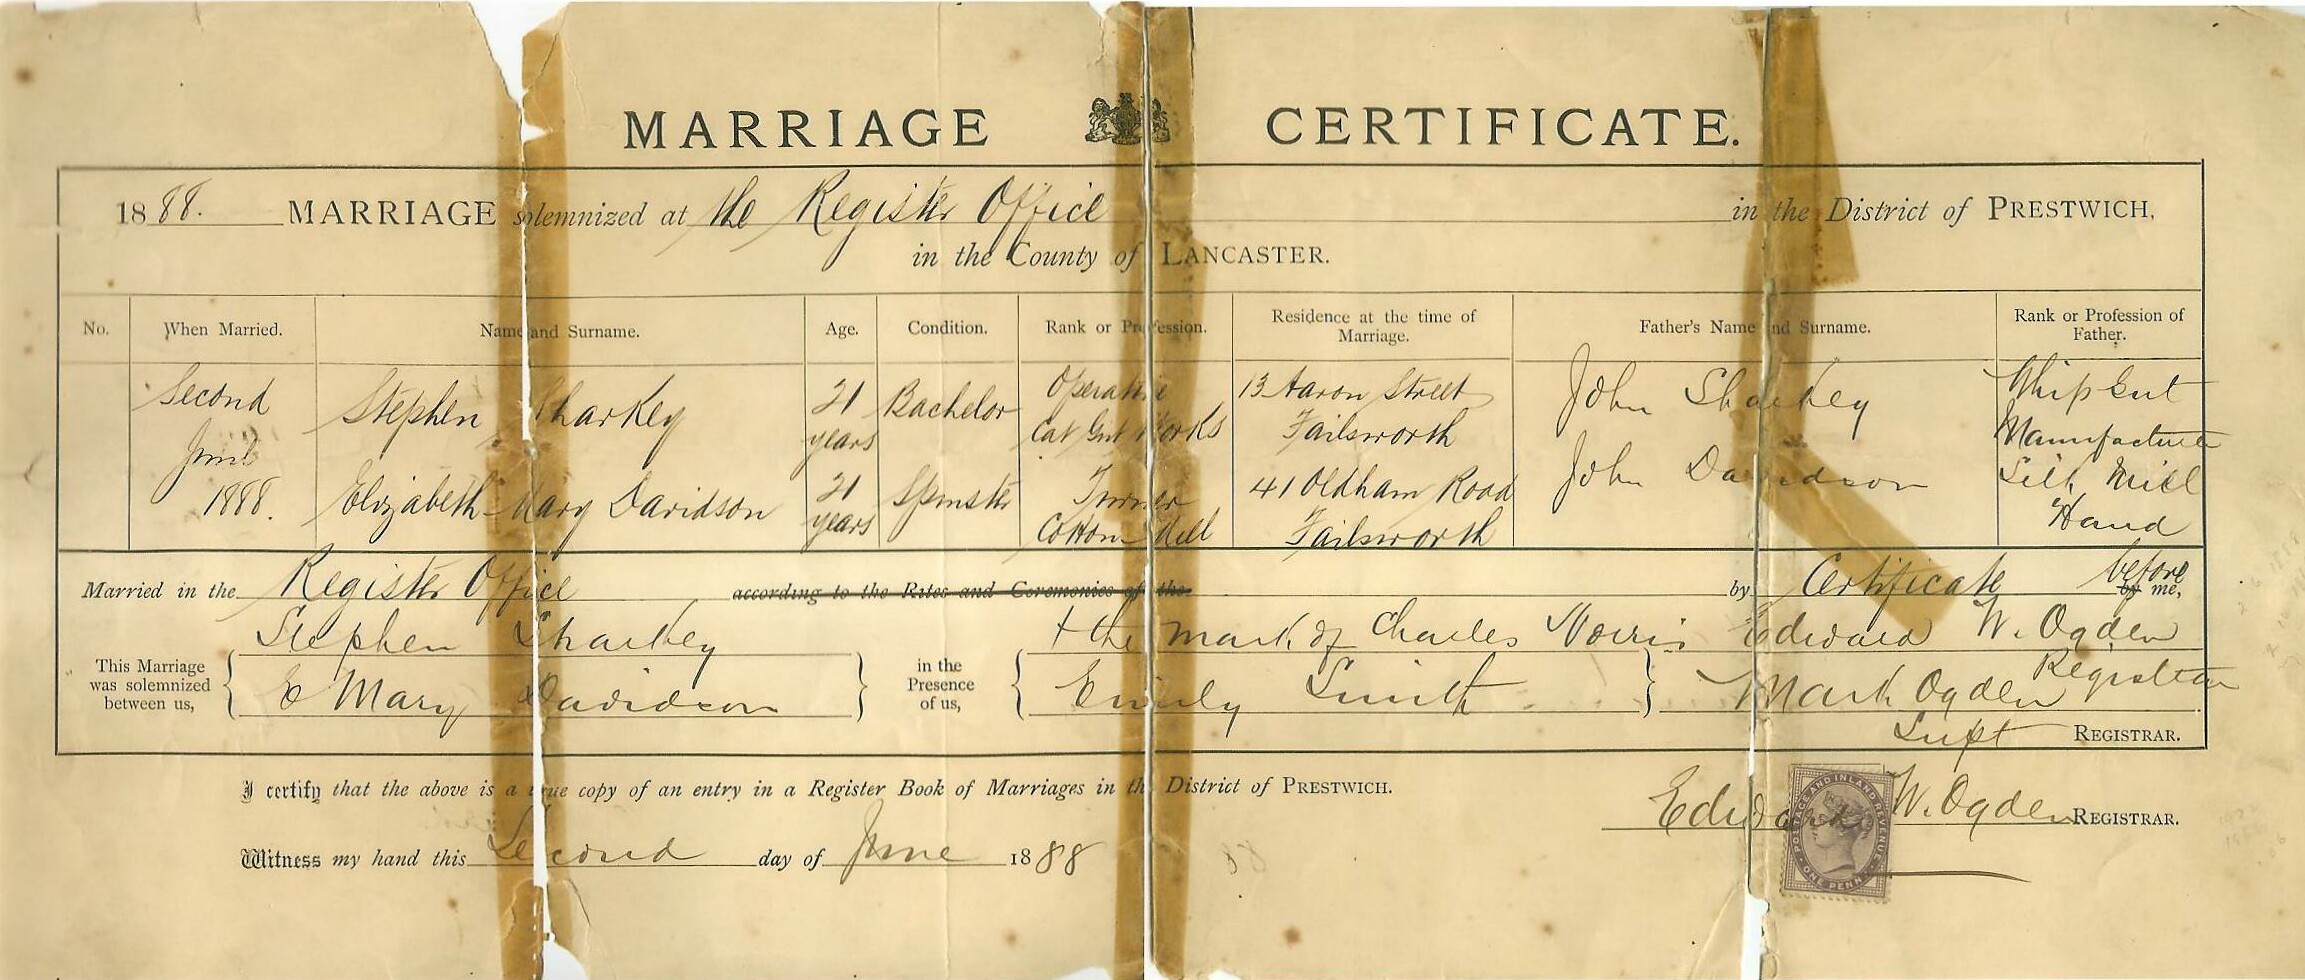 MARRIAGE CERTIFICATE.
1888. MARRIAGE solemnized at the Register Office in the District of PRESTWICH,
in the County of LANCASTER.
No. When Married. Name and Surname. Age. Condition. Rank or Profession. Residence at the time of Marriage. Father's Name and Surname. Rank or Profession of Father.
Second June 1888. Stephen Sharkey 21 years Bachelor Operative Cat Gut Works 13 Aaron Street Failsworth John Sharkey Whip Gut Manufacturer
Elizabeth Mary Davidson 21 years Spinster Cotton Mill 41 Oldham Road Failsworth John Davidson Silk Mill Hand
Married in the Register Office according to the Rites and Ceremonies of the by Certificate before by me,
This Marriage was solemnized between us,
Stephen Sharkey
E Mary Davidson
in the Presence of us,
+ the mark of Charles Norris
Emily Smith
Edward W. Ogden
Registrar
Mark Ogden
Supt REGISTRAR.
I certify that the above is a true copy of an entry in a Register Book of Marriages in the District of PRESTWICH.
Witness my hand this Second day of June 1888
Edward W. Ogden REGISTRAR.
POSTAGE AND INLAND REVENUE
ONE PENNY